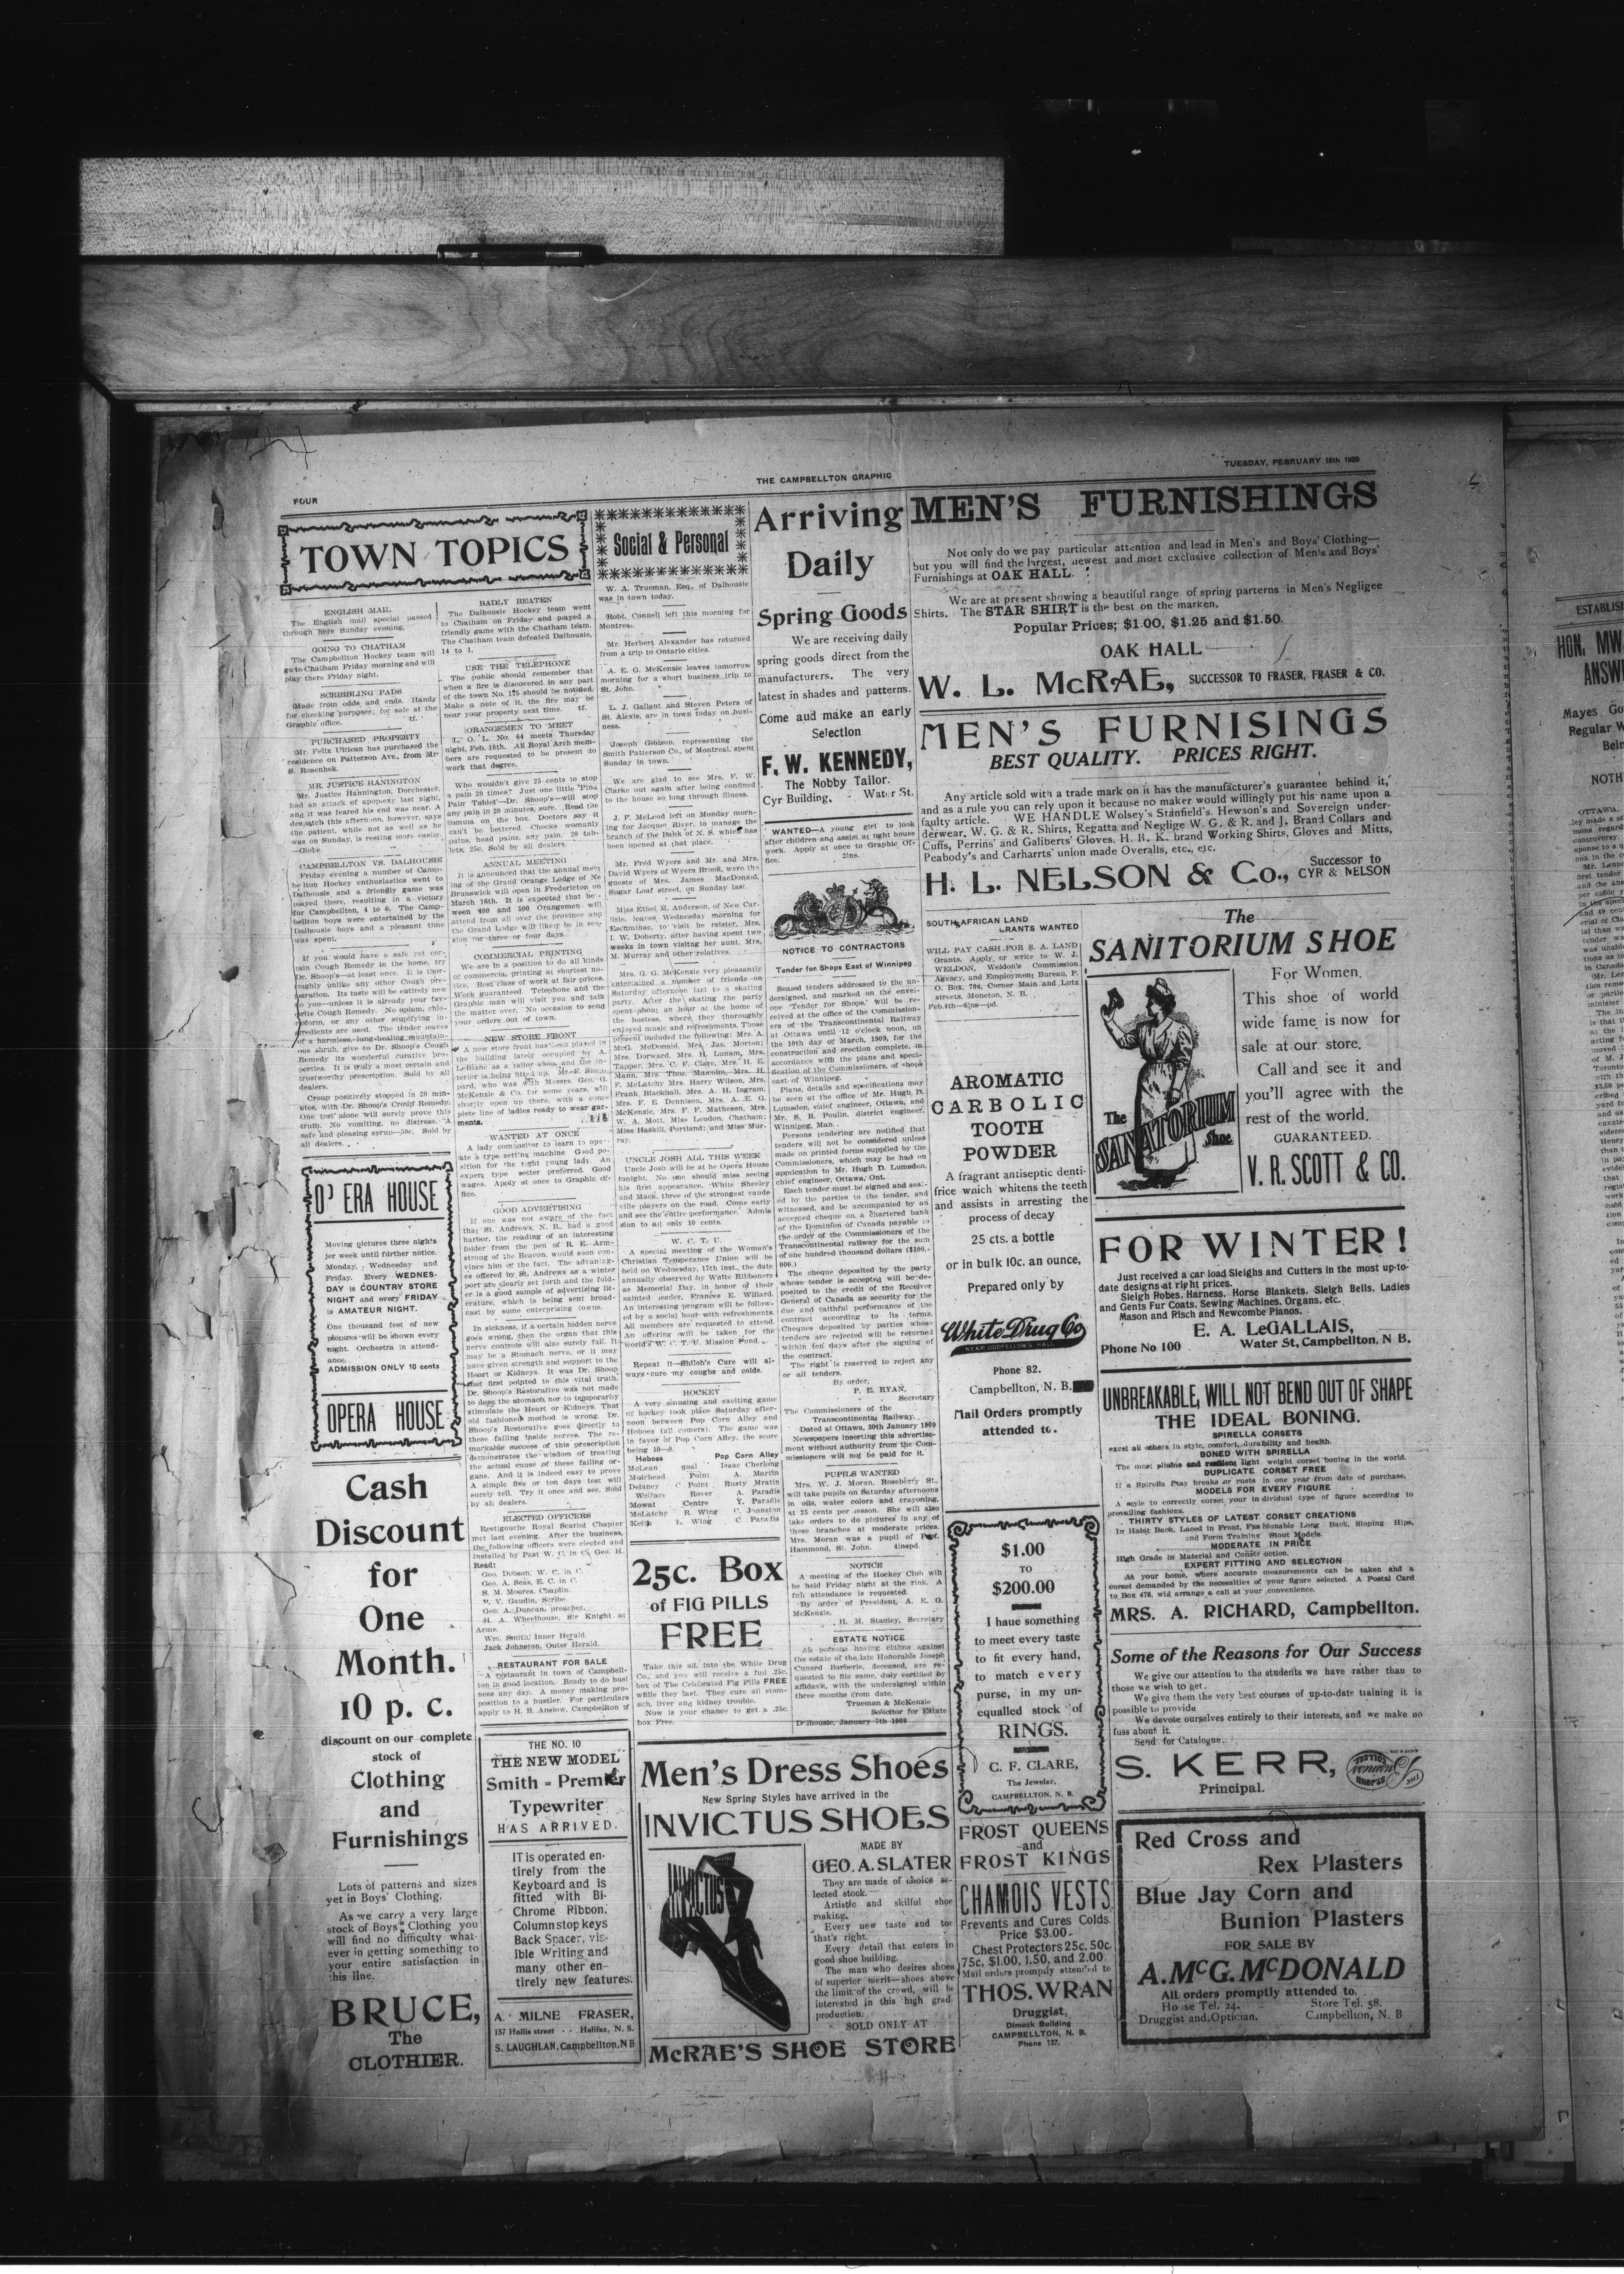 FOUR
THE CAMPBELLTON GRAPHIC
TUESDAY, FEBRUARY 16th 1909
TOWN TOPICS
ENGLISH MAIL
The English mail special passed
through here Sunday evening.
GOING TO CHATHAM
The Campbellton Hockey team will
go to Chatham Friday morning and will
play there Friday night.
SCRIBBLING PADS
Made from odds and ends. Handy
for checking purposes; for sale at the
Graphic office. tf.
PURCHASED PROPERTY
Mr. Felix Ultican has purchased the
residence on Patterson Ave., from Mr
S. Rosenhek.
MR. JUSTICE HANINGTON
Mr. Justice Hannington, Dorchester,
had an attack of apopexy last night,
and it was feared his end was near. A
despatch this afternoon, however, says
the patient, while not as well as he
was on Sunday, is resting more easily.
—Globe.
CAMPBELLTON VS. DALHOUSIE
Friday evening a number of Camp-
bellton Hockey enthusiastics went to
Dalhousie and a friendly game was
played there, resulting in a victory
for Campbellton, 4 to 0. The Camp-
bellton boys were entertained by the
Dalhousie boys and a pleasant time
was spent.
If you would have a safe yet cer-
tain Cough Remedy in the home, try
Dr. Shoop's—at least once. It is thor-
oughly unlike any other Cough pre-
paration. Its taste will be entirely new
to you—unless it is already your fav-
orite Cough Remedy. No opium, chlo-
roform, or any other stupifying in-
gredients are used. The tender leaves
of a harmless, lung-healing mountain-
ous shrub, give to Dr. Shoop's Cough
Remedy its wonderful curative pro-
perties. It is truly a most certain and
trustworthy prescription. Sold by all
dealers.
Croup positively stopped in 20 min-
utes, with Dr. Shoop's Croup Remedy.
One test alone will surely prove this
truth. No vomiting, no distress. A
safe and pleasing syrup—50c. Sold by
all dealers.
O' ERA HOUSE
Moving pictures three nights
per week until further notice.
Monday, Wednesday and
Friday. Every WEDNES-
DAY is COUNTRY STORE
NIGHT and every FRIDAY
is AMATEUR NIGHT.
One thousand feet of new
pictures will be shown every
night. Orchestra in attend-
ance.
ADMISSION ONLY 10 cents
OPERA HOUSE
Cash
Discount
for
One
Month.
10 p. c.
discount on our complete
stock of
Clothing
and
Furnishings
Lots of patterns and sizes
yet in Boys' Clothing.
As we carry a very large
stock of Boys' Clothing you
will find no difficulty what-
ever in getting something to
your entire satisfaction in
this line.
BRUCE,
The
CLOTHIER.
BADLY BEATEN
The Dalhousie Hockey team went
to Chatham on Friday and payed a
friendly game with the Chatham team.
The Chatham team defeated Dalhousie,
14 to 1.
USE THE TELEPHONE
The public should remember that
when a fire is discovered in any part
of the town No. 175 should be notified.
Make a note of it, the fire may be
near your property next time. tf.
ORANGEMEN TO MEET
L. O. L. No. 64 meets Thursday
night, Feb. 18th. All Royal Arch mem-
bers are requested to be present to
work that degree.
Who wouldn't give 25 cents to stop
a pain 20 times? Just one little "Pink
Pain Tablet"—Dr. Shoop's—will stop
any pain in 20 minutes, sure. Read the
fomula on the box. Doctors say it
can't be bettered. Checks womanly
pains, head pains, any pain. 20 tab-
lets, 25c. Sold by all dealers.
ANNUAL MEETING
It is announced that the annual meet
ing of the Grand Orange Lodge of Ne
Brunswick will open in Fredericton on
March 16th. It is expected that be-
ween 400 and 500 Orangemen will
attend from all over the province and
the Grand Lodge will likely be in ses-
sion for three or four days.
COMMERCIAL PRINTING
We are in a position to do all kinds
of commercial printing at shortest no-
tice. Best class of work at fair prices.
Work guaranteed. Telephone and the
Graphic man will visit you and talk
the matter over. No occasion to send
your orders out of town.
NEW STORE FRONT
A new store front has been placed in
the building lately occupied by A.
LeBlanc as a tailor shop, and the in-
terior is being fitted up. Mr. F. Shep-
pard, who was with Messrs. Geo. G.
McKenzie & Co. for some years, will
shortly open up there, with a com-
plete line of ladies ready to wear gar-
ments.
WANTED AT ONCE
A lady compositor to learn to oper-
ate a type setting machine Good po-
sition for the right young lady. An
expert type setter preferred. Good
wages. Apply at once to Graphic of-
fice.
GOOD ADVERTISING
If one was not aware of the fact
that St. Andrews, N. B., had a good
harbor, the reading of an interesting
folder from the pen of R. E. Arm-
strong of the Beacon, would soon con-
vince him of the fact. The advantag-
es offered by St. Andrews as a winter
port are clearly set forth and the fold-
er is a good sample of advertising lit-
erature, which is being sent broad-
cast by some enterprising towns.
In sickness, if a certain hidden nerve
goes wrong, then the organ that this
nerve controls will also surely fail. It
may be a Stomach nerve, or it may
have given strength and support to the
Heart or Kidneys. It was Dr. Shoop
that first pointed to this vital truth.
Dr. Shoop's Restorative was not made
to dose the stomach nor to temporarily
stimulate the Heart or Kidneys. That
old fashioned method is wrong. Dr.
Shoop's Restorative goes directly to
these failing inside nerves. The re-
markable success of this prescription
demonstrates the wisdom of treating
the actual cause of these failing or-
gans. And it is indeed easy to prove
A simple five or ten days test will
surely tell. Try it once and see. Sold
by all dealers.
ELECTED OFFICERS
Restigouche Royal Scarlet Chapter
met last evening. After the business,
the following officers were elected and
installed by Past W. C. in C. Geo. H.
Read:
Geo. Dobson, W. C. in C.
Geo. A. Seas, E. C. in C.
S. M. Moores, Chaplin.
P. V. Gaudin, Scribe.
Geo. A. Duncan, preacher.
H. A. Wheelhouse, Sir Knight at
Arms.
Wm. Smith, Inner Herald.
Jack Johnston, Outer Herald.
RESTAURANT FOR SALE
A restaurant in town of Campbell-
ton in good location. Ready to do busi
ness any day. A money making pro-
position to a hustler. For particulars
apply to H. B. Anslow, Campbellton tf
THE NO. 10
THE NEW MODEL
Smith - Premier
Typewriter
HAS ARRIVED.
IT is operated en-
tirely from the
Keyboard and is
fitted with Bi-
Chrome Ribbon.
Column stop keys
Back Spacer, vis-
ible Writing and
many other en-
tirely new features.
A. MILNE FRASER,
157 Hollis street - - Halifax, N. S.
S. LAUGHLAN, Campbellton, N B
Social & Personal
W. A. Trueman, Esq., of Dalhousie
was in town today.
Robt. Connell left this morning for
Montreal.
Mr. Herbert Alexander has returned
from a trip to Ontario cities.
A. E. G. McKenzie leaves tomorrow
morning for a short business trip to
St. John.
L. J. Gallant and Steven Peters of
St. Alexis, are in town today on busi-
ness.
Joseph Gibison, representing the
Smith Patterson Co., of Montreal, spent
Sunday in town.
We are glad to see Mrs. F. W.
Clarke out again after being confined
to the house so long through illness.
J. F. McLeod left on Monday morn-
ing for Jacquet River, to manage the
branch of the Bank of N. S. which has
been opened at that place.
Mr. Fred Wyers and Mr. and Mrs.
David Wyers of Wyers Brook, were the
guests of Mrs. James MacDonald,
Sugar Loaf street, on Sunday last.
Miss Ethel M. Anderson, of New Car-
lisle, leaves Wednesday morning for
Escuminac, to visit he rsister, Mrs.
I. W. Doherty, after having spent two
weeks in town visiting her aunt, Mrs.
M. Murray and other relatives.
Mrs. G. G. McKenzie very pleasantly
entertained a number of friends on
Saturday afternoon last to a skating
party. After the skating the party
spent about an hour at the home of
the hostess, where they thoroughly
enjoyed music and refreshments. Those
present included the following: Mrs. A.
McG. McDonald, Mrs. Jas. Morton;
Mrs. Dorward, Mrs. H. Lunam, Mrs.
Tapper, Mrs. C. F. Clare, Mrs. H. E.
Mann, Mrs. Thos. Malcolm, Mrs. H.
F. McLatchy Mrs. Harry Wilson, Mrs.
Frank Blackhall, Mrs. A. H. Ingram,
Mrs. F. E. Dennison, Mrs. A. E. G.
McKenzie, Mrs. F. F. Matheson, Mrs.
W. A. Mott, Miss Loudon, Chatham;
Miss Haskill, Portland; and Miss Mur-
ray.
UNCLE JOSH ALL THIS WEEK
Uncle Josh will be at the Opera House
tonight. No one should miss seeing
his first appearance. White Sherley
and Mack, three of the strongest vaude
ville players on the road. Come early
and see the entire performance. Admis
sion to all only 10 cents.
W. C. T. U.
A special meeting of the Woman's
Christian Temperance Union will be
held on Wednesday, 17th inst., the date
annually observed by White Ribboners
as Memorial Day, in honor of their
sainted leader, Frances E. Willard.
An interesting program will be follow-
ed by a social hour with refreshments.
All members are requested to attend.
An offering will be taken for the
world's W. C. T. U. Mission Fund.
Repeat it—Shiloh's Cure will al-
ways cure my coughs and colds.
HOCKEY
A very amusing and exciting game
of hockey took place Saturday after-
noon between Pop Corn Alley and
Hoboes (all comers). The game was
in favor of Pop Corn Alley, the score
being 10—0.
Hoboes Pop Corn Alley
McLean goal Isaac Cherlong
Muirhead Point A. Martin
Delaney C Point Rusty Mratin
Wallace Rover A. Paradis
Mowat Centre Y. Paradis
McLatchy R. Wing C. Joanston
Keith L. Wing C. Paradis
25c. Box
of FIG PILLS
FREE
Take this ad. into the White Drug
Co., and you will receive a full 25c.
box of The Celebrated Fig Pills FREE
while they last. They cure all stom-
ach, liver and kidney trouble.
Now is your chance to get a 25c.
box Free.
Men's Dress Shoes
New Spring Styles have arrived in the
INVICTUS SHOES
INVICTUS
MADE BY
GEO. A. SLATER
They are made of choice se-
lected stock.—
Artistic and skilful shoe
making.
Every new taste and toe
that's right.
Every detail that enters in
good shoe building.
The man who desires shoes
of superior merit—shoes above
the limit of the crowd, will be
interested in this high grad
production.
SOLD ONLY AT
McRAE'S SHOE STORE
Arriving
Daily
Spring Goods
We are receiving daily
spring goods direct from the
manufacturers. The very
latest in shades and patterns.
Come aud make an early
Selection
F. W. KENNEDY,
The Nobby Tailor.
Cyr Building, - Water St.
WANTED—A young girl to look
after children and assist at light house
work. Apply at once to Graphic Of-
fice. 2ins.
NOTICE TO CONTRACTORS
Tender for Shops East of Winnipeg
Sealed tenders addressed to the un-
dersigned, and marked on the envel-
ope 'Tender for Shops,' will be re-
ceived at the office of the Commission-
ers of the Transcontinental Railway
at Ottawa until 12 o'clock noon, on
the 10th day of March, 1909, for the
construction and erection complete, in
accordance with the plans and speci-
fication of the Commissioners, of shops
east of Winnipeg.
Plans, details and specifications may
be seen at the office of Mr. Hugh D.
Lumsden, chief engineer, Ottawa, and
Mr. S. R. Poulin, district engineer,
Winnipeg, Man.
Persons tendering are notified that
tenders will not be considered unless
made on printed forms supplied by the
Commissioners, which may be had on
application to Mr. Hugh D. Lumsden,
chief engineer, Ottawa, Ont.
Each tender must be signed and seal-
ed by the parties to the tender, and
witnessed, and be accompanied by an
accepted cheque on a chartered bank
of the Dominfon of Canada payable to
the order of the Commissioners of the
Transcontinental railway for the sum
of one hundred thousand dollars ($100,-
000.)
The cheque deposited by the party
whose tender is accepted will be de-
posited to the credit of the Receiver
General of Canada as security for the
due and faithful performance of the
contract according to its terms.
Cheques deposited by parties whose
tenders are rejected will be returned
within ten days after the signing of
the contract.
The right is reserved to reject any
or all tenders.
By order,
P. E. RYAN,
Secretary
The Commissioners of the
Transcontinental Railway.
Dated at Ottawa, 30th January 1909
Newspapers inserting this advertise-
ment without authority from the Com-
missioners will not be paid for it.
PUPILS WANTED
Mrs. W. J. Moran, Roseberry St.,
will take pupils on Saturday afternoons
in oils, water colors and crayoning,
at 25 cents per lesson. She will also
take orders to do pictures in any of
these branches at moderate prices.
Mrs. Moran was a pupil of Prof.
Hammond, St. John. 4inspd.
NOTICE
A meeting of the Hockey Club will
be held Friday night at the rink. A
full attendance is requested.
By order of President, A. E. G.
McKenzie.
H. M. Stanley, Secretary
ESTATE NOTICE
All persons having claims against
the estate of the late Honorable Joseph
Cunard Barberie, deceased, are re-
quested to file same, duly certified by
affidavit, with the undersigned within
three months from date.
Trueman & McKenzie
Solicitor for Estate
Dalhousie, January 7th 1909
MEN'S FURNISHINGS
Not only do we pay particular attention and lead in Men's and Boys' Clothing—
but you will find the largest, newest and most exclusive collection of Men's and Boys'
Furnishings at OAK HALL.
We are at present showing a beautiful range of spring parterns in Men's Negligee
Shirts. The STAR SHIRT is the best on the marken.
Popular Prices; $1.00, $1.25 and $1.50.
OAK HALL
W. L. McRAE, SUCCESSOR TO FRASER, FRASER & CO.
MEN'S FURNISINGS
BEST QUALITY. PRICES RIGHT.
Any article sold with a trade mark on it has the manufacturer's guarantee behind it,
and as a rule you can rely upon it because no maker would willingly put his name upon a
faulty article. WE HANDLE Wolsey's Stanfield's, Hewson's and Sovereign under-
derwear, W. G. & R. Shirts, Regatta and Neglige W. G. & R. and J. Brand Collars and
Cuffs, Perrins' and Galiberts' Gloves, H. B. K. brand Working Shirts, Gloves and Mitts,
Peabody's and Carharrts' union made Overalls, etc., etc.
H. L. NELSON & Co., Successor to
CYR & NELSON
SOUTH AFRICAN LAND
GRANTS WANTED
WILL PAY CASH FOR S. A. LAND
Grants. Apply, or write to W. J.
WELDON, Weldon's Commission
Agency, and Employment Bureau, P.
O. Box, 794, Corner Main and Lutz
streets, Moncton, N. B.
Feb. 4th—6ins—pd.
AROMATIC
CARBOLIC
TOOTH
POWDER
A fragrant antiseptic denti-
frice which whitens the teeth
and assists in arresting the
process of decay
25 cts. a bottle
or in bulk 10c. an ounce,
Prepared only by
White Drug Co
NEAR ODDFELLOWS HALL
Phone 82.
Campbellton, N. B.
Mail Orders promptly
attended to.
$1.00
TO
$200.00
I haue something
to meet every taste
to fit every hand,
to match every
purse, in my un-
equalled stock of
RINGS.
C. F. CLARE,
The Jeweler,
CAMPBELLTON, N. B.
FROST QUEENS
and
FROST KINGS
CHAMOIS VESTS
Prevents and Cures Colds.
Price $3.00.
Chest Protectors 25c, 50c,
75c, $1.00, 1.50, and 2.00.
Mail orders promptly attended to
THOS. WRAN
Druggist,
Dimock Building
CAMPBELLTON, N. B.
Phone 137.
The
SANITORIUM SHOE
The
SANATORIUM
Shoe
For Women.
This shoe of world
wide fame is now for
sale at our store.
Call and see it and
you'll agree with the
rest of the world.
GUARANTEED.
V. R. SCOTT & CO.
FOR WINTER!
Just received a car load Sleighs and Cutters in the most up-to-
date designs at right prices.
Sleigh Robes, Harness, Horse Blankets, Sleigh Bells, Ladies
and Gents Fur Coats, Sewing Machines, Organs, etc.
Mason and Risch and Newcombe Pianos.
E. A. LeGALLAIS,
Phone No 100 Water St, Campbellton, N B.
UNBREAKABLE, WILL NOT BEND OUT OF SHAPE
THE IDEAL BONING.
SPIRELLA CORSETS
excel all others in style, comfort, durability and health.
BONED WITH SPIRELLA
The most pliable and resilient light weight corset boning in the world.
DUPLICATE CORSET FREE
If a Spirella Stay breaks or rusts in one year from date of purchase.
MODELS FOR EVERY FIGURE
A style to correctly corset your in dividual type of figure according to
prevailing fashions.
THIRTY STYLES OF LATEST CORSET CREATIONS
In Habit Back, Laced in Front, Fashionable Long Back, Sloping Hips,
and Form Training Stout Models.
MODERATE IN PRICE
High Grade in Material and Constr uction.
EXPERT FITTING AND SELECTION
At your home, where accurate measurements can be taken and a
corset demanded by the necessities of your figure selected. A Postal Card
to Box 476, wid arrange a call at your convenience.
MRS. A. RICHARD, Campbellton.
Some of the Reasons for Our Success
We give our attention to the students we have rather than to
those we wish to get.
We give them the very best courses of up-to-date training it is
possible to provide
We devote ourselves entirely to their interests, and we make no
fuss about it.
Send for Catalogue.
S. KERR,
Principal.
Red Cross and
Rex Plasters
Blue Jay Corn and
Bunion Plasters
FOR SALE BY
A. McG. McDONALD
All orders promptly attended to.
House Tel. 24. Store Tel. 58.
Druggist and Optician. Campbellton, N. B
HON. MW
ANSW
Mayes Go
Regular W
Bein
NOTH